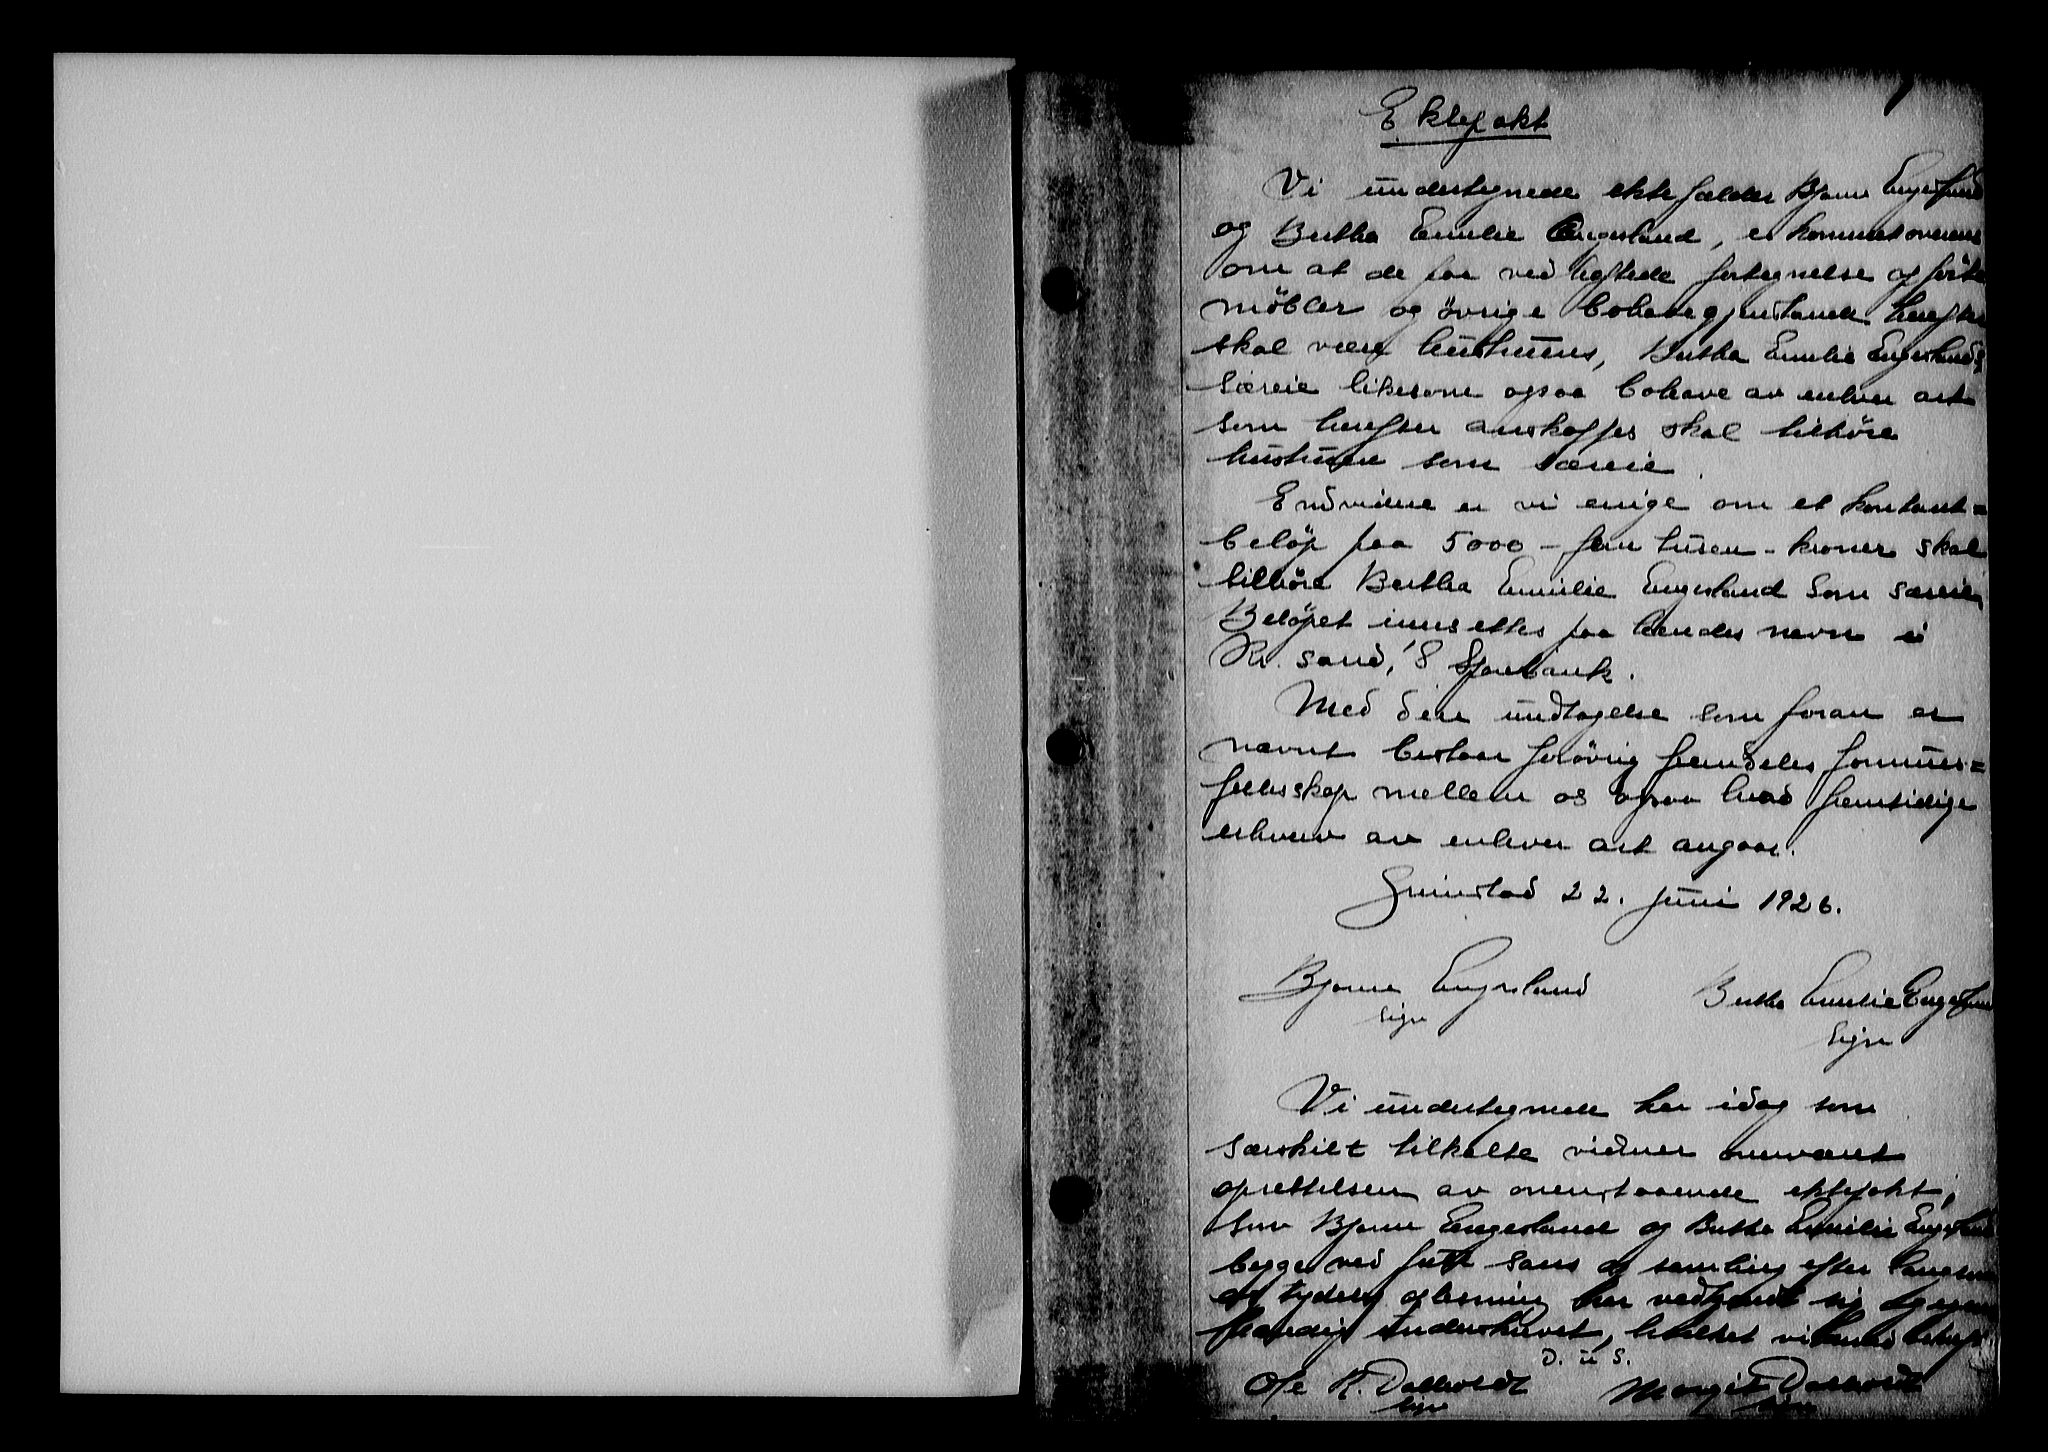 Ektepakt
Vi undertegnede ektefælder Bjarne Engesland
og Bertha Emilie Engesland, er kommet overens
om at de paa vedheftede fortegnelse opførte
møbler og øvrige bohavegjenstande herefter
skal være hustruens, Bertha Emilie Engeslands
særeie likesom ogsaa bohave av enhver art
som herefter anskaffes skal tilhøre
hustruen som særeie.
Endvidere er vi enige om et kontant=
beløp paa 5000 - fem tusen - kroner skal
tilhøre Bertha Emilie Engesland som særeie
Beløpet innsettes paa hendes navn i
Kr. sand, S Sparebank.
Med den undtagelse som foran er
nævnt bestaar forøvrig fremdeles formues=
fellesskap mellem os ogsaa hvad fremtidige
erhverv av enhver art angaar.
Grimstad 22. juni 1926.
Bjarne Engesland Bertha Emilie Engesland
sign
sign
Vi undertegnede har idag som
særskilt tilkalte vidner overværet
oprettelsen av ovenstaaende ektepakt,
som Bjarne Engesland og Bertha Emilie Engesland
begge ved full sans og samling efter langsom
og tydelig oplesning har vedkjendt sig og egen=
hændig underskrevet, hvilket vi herved
D. u S.
Ole K. Dalholdt Margit Dalholdt
sign sign